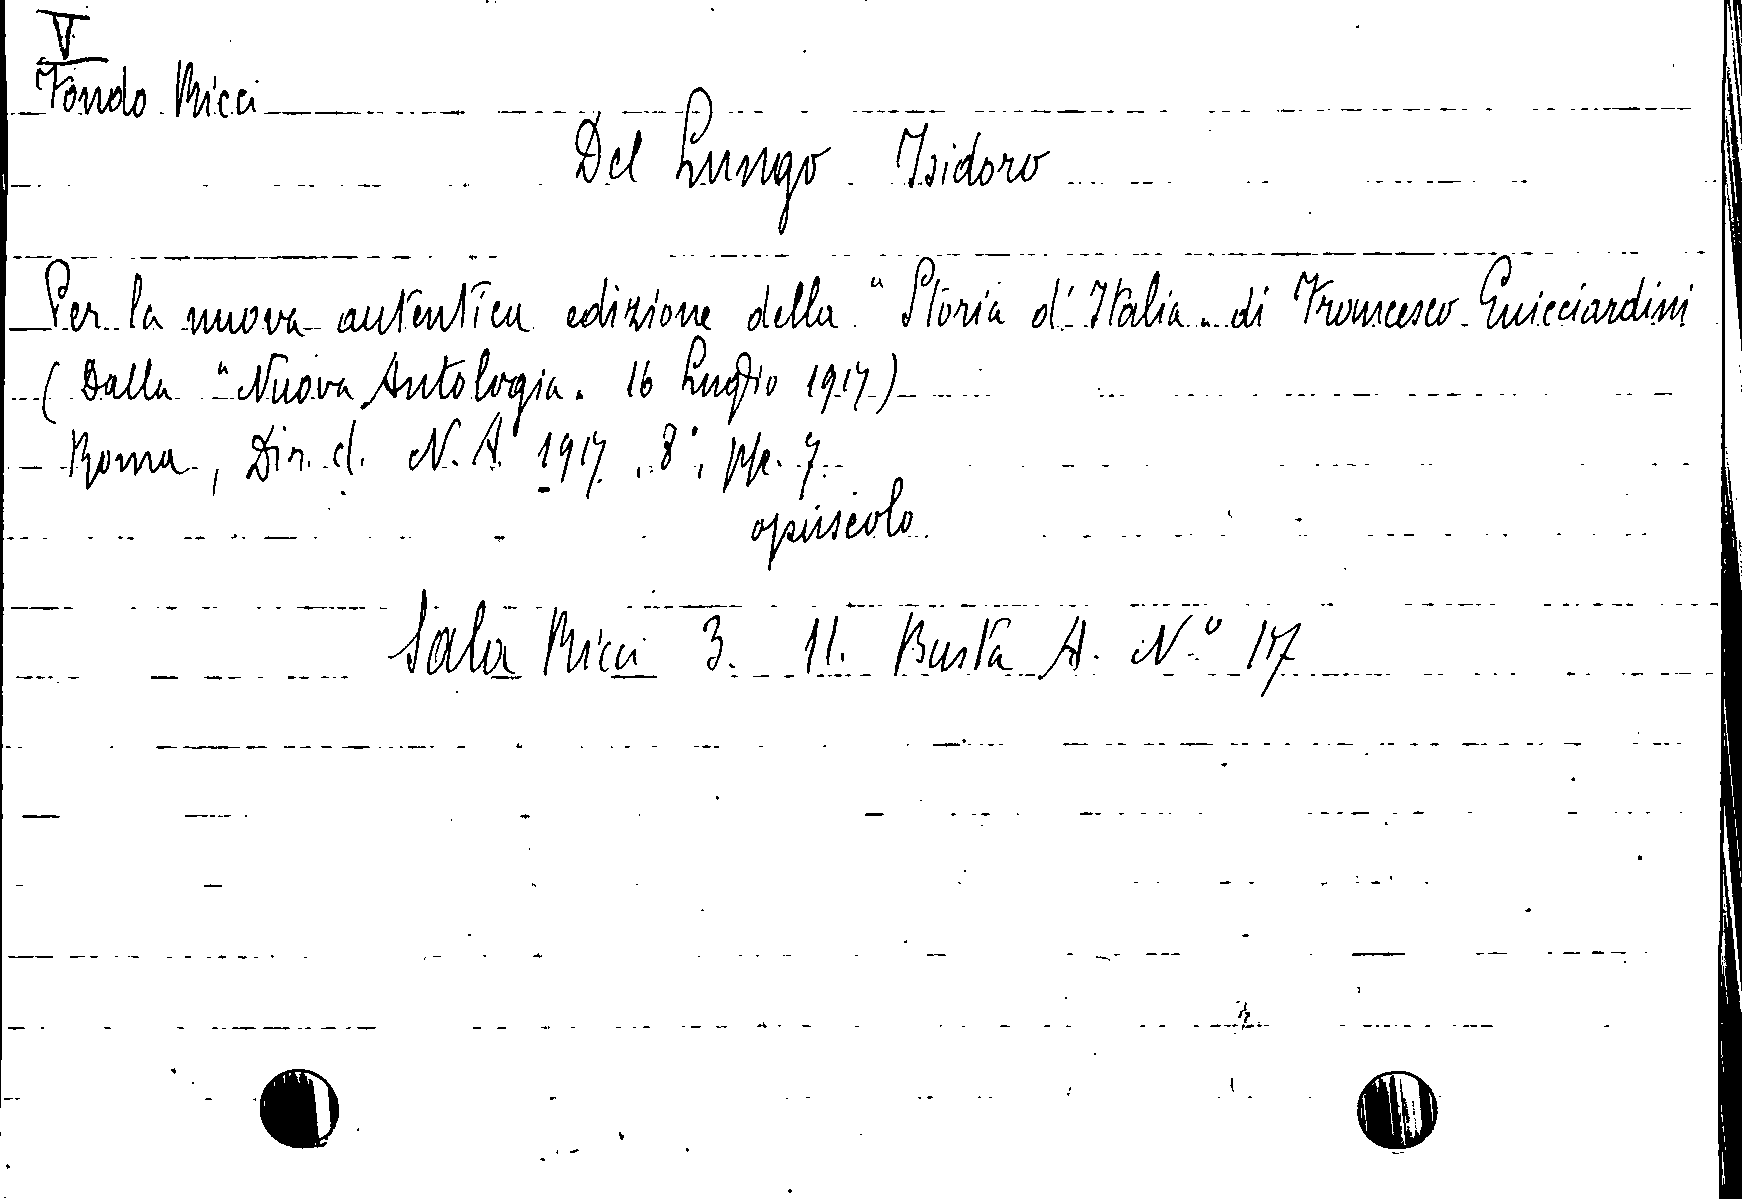 V
Fondo Ricci
Del Lungo Isidoro
Per la nuova autentica edizione della "Storia d'Italia" di Francesco Guicciardini
(Dalla "Nuova Antologia" 16 Luglio 1917)
Roma, Dir. d. N. A. 1917, 8°, pp. 7.
opuscolo
Sala Ricci 3. 11. Busta A. N.° 17